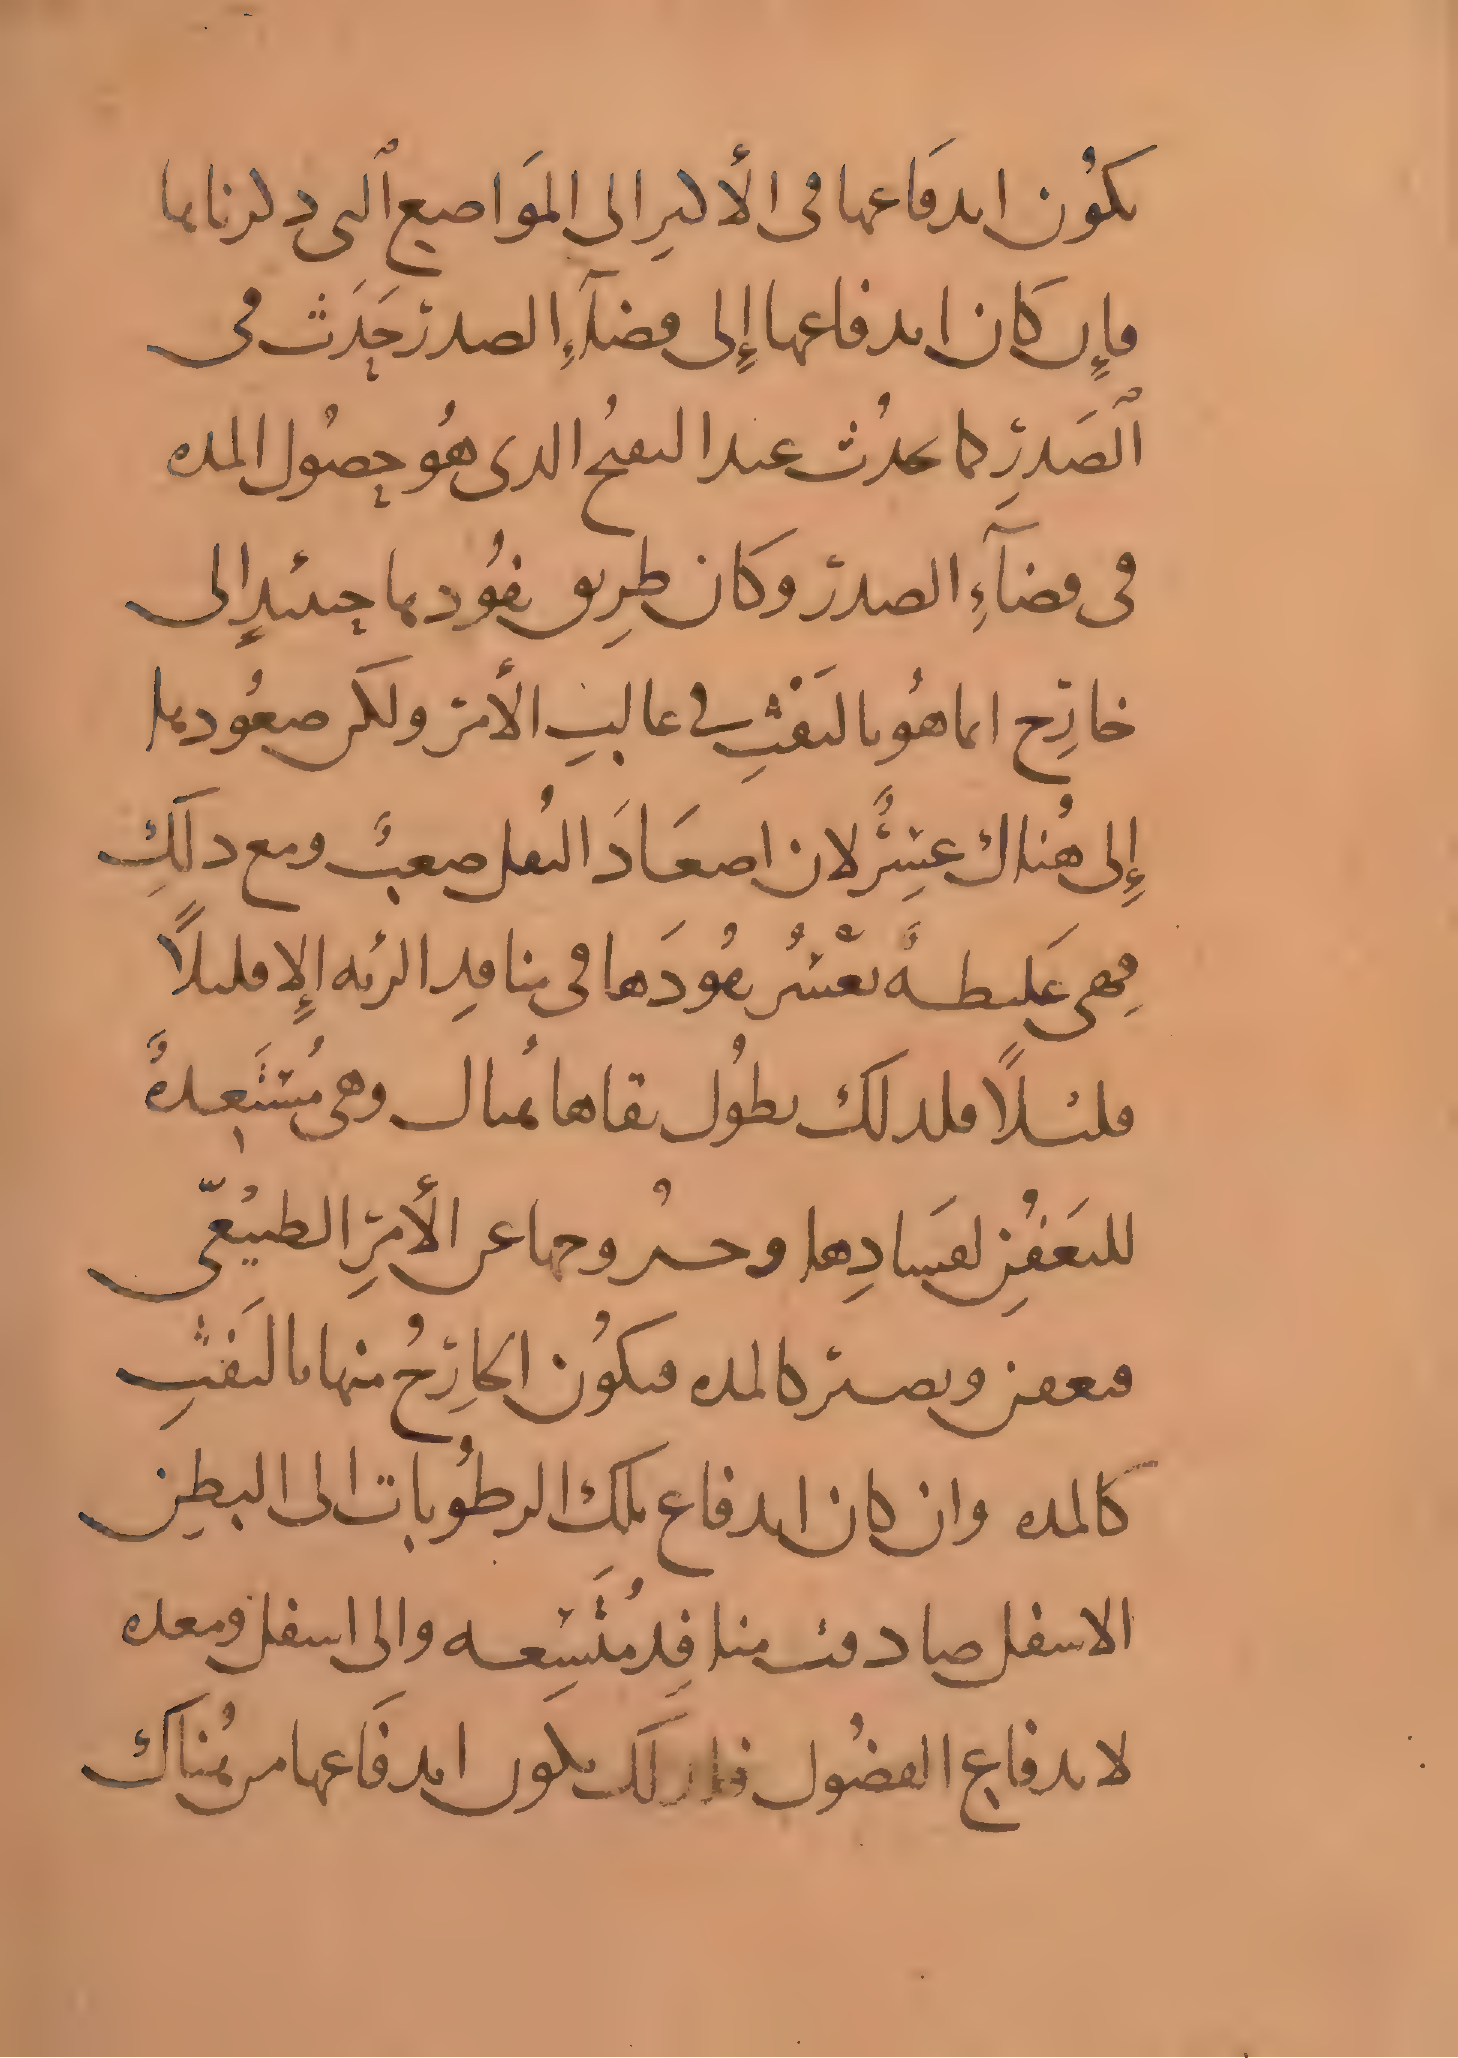 يكون اندفاعها فى الأكثر الى المَواضع ٱلتى ذكرناها
فإن كان اندفاعها إلى فضآءِ الصدر حَدَث فى
ٱلصَدرِ كما يحدُث عند التقيُّح الذى هُو حصُول المده
فى فضآءِ الصدر وكان طرِيق نفُوذها حينئذٍ إلى
خارِج انما هُو بالنَفثِ فى غالبِ الأمر ولكن صعُودها
إلى هُناك عسِرٌ لان اصعَادَ الثقل صعبٌ ومع ذلَكِ
فهِى غَليظةٌ يعْسُرُ نفُوذَها فى منافذِ الرئه إلا قليلًا
قليلًا فلذلك يطُول بقاها هُناك وهى مُستَعِدةٌ
للتَعفُنِ لفسَادِها وخروُجها عن الأمرِ الطبيعّى
فتعفن وتصير كالمده فيكُون الخارِجُ منها بالنَفثِ
كالمده وان كان اندفاع تلك الرطُوبات الى البطنِ
الاسفل صادفت منافِذ مُتَسِعه والى اسفل ومعده
لاندفاع الفضُول فلذلَك يكون اندفَاعها من هُناك